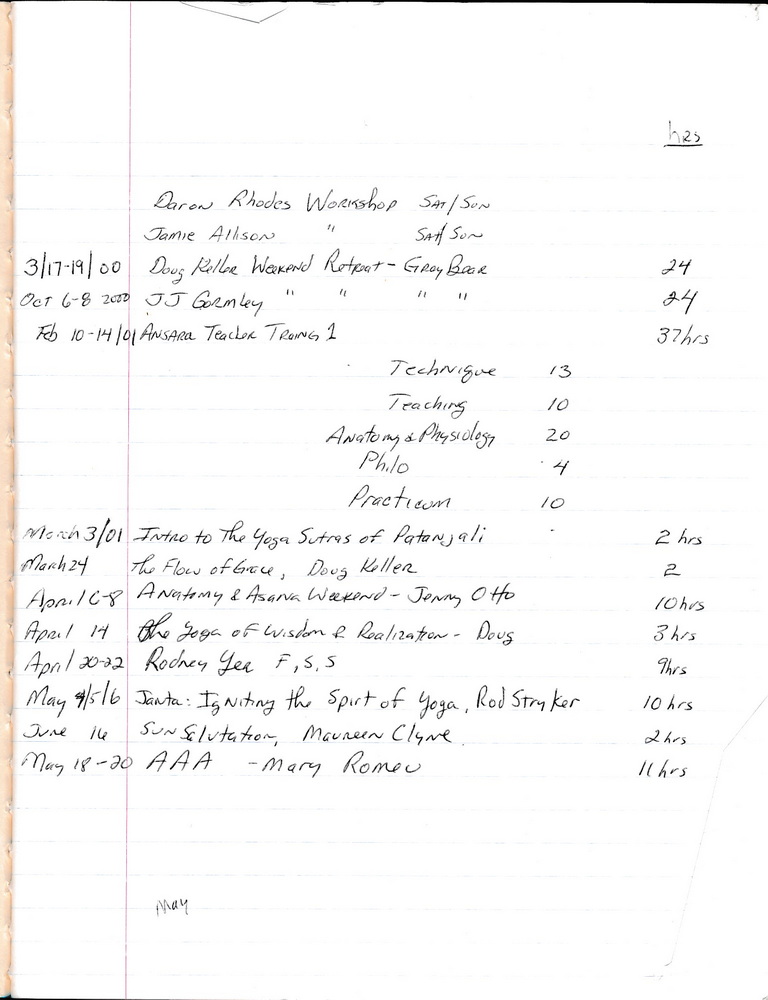 hrs
Daron Rhodes Workshop SAT/SUN
Jamie Allison " SAT/SUN
3/17-19/00 Doug Keller Weekend Retreat - Gray Bear 24
Oct 6-8 2000 JJ Gormley " " " " 24
Feb 10-14/01 ANSARA Teacher TRaING 1 37hrs
Technique 13
Teaching 10
Anatomy & Physiology 20
Philo 4
Practicum 10
March 3/01 Intro to The Yoga Sutras of Patanjali 2 hrs
March 24 The Flow of Grace, Doug Keller 2
April 6-8 Anatomy & Asana Weekend - Jenny Otto 10hrs
April 14 the Yoga of Wisdom & Realization - Doug 3hrs
April 20-22 Rodney Yee F, S, S 9hrs
May 4/5/6 Tantra: Igniting the Spirt of Yoga, Rod Stryker 10 hrs
June 16 Sun Salutation, Maureen Clyne 2hrs
May 18-20 AAA - Mary Romeo 11 hrs
May